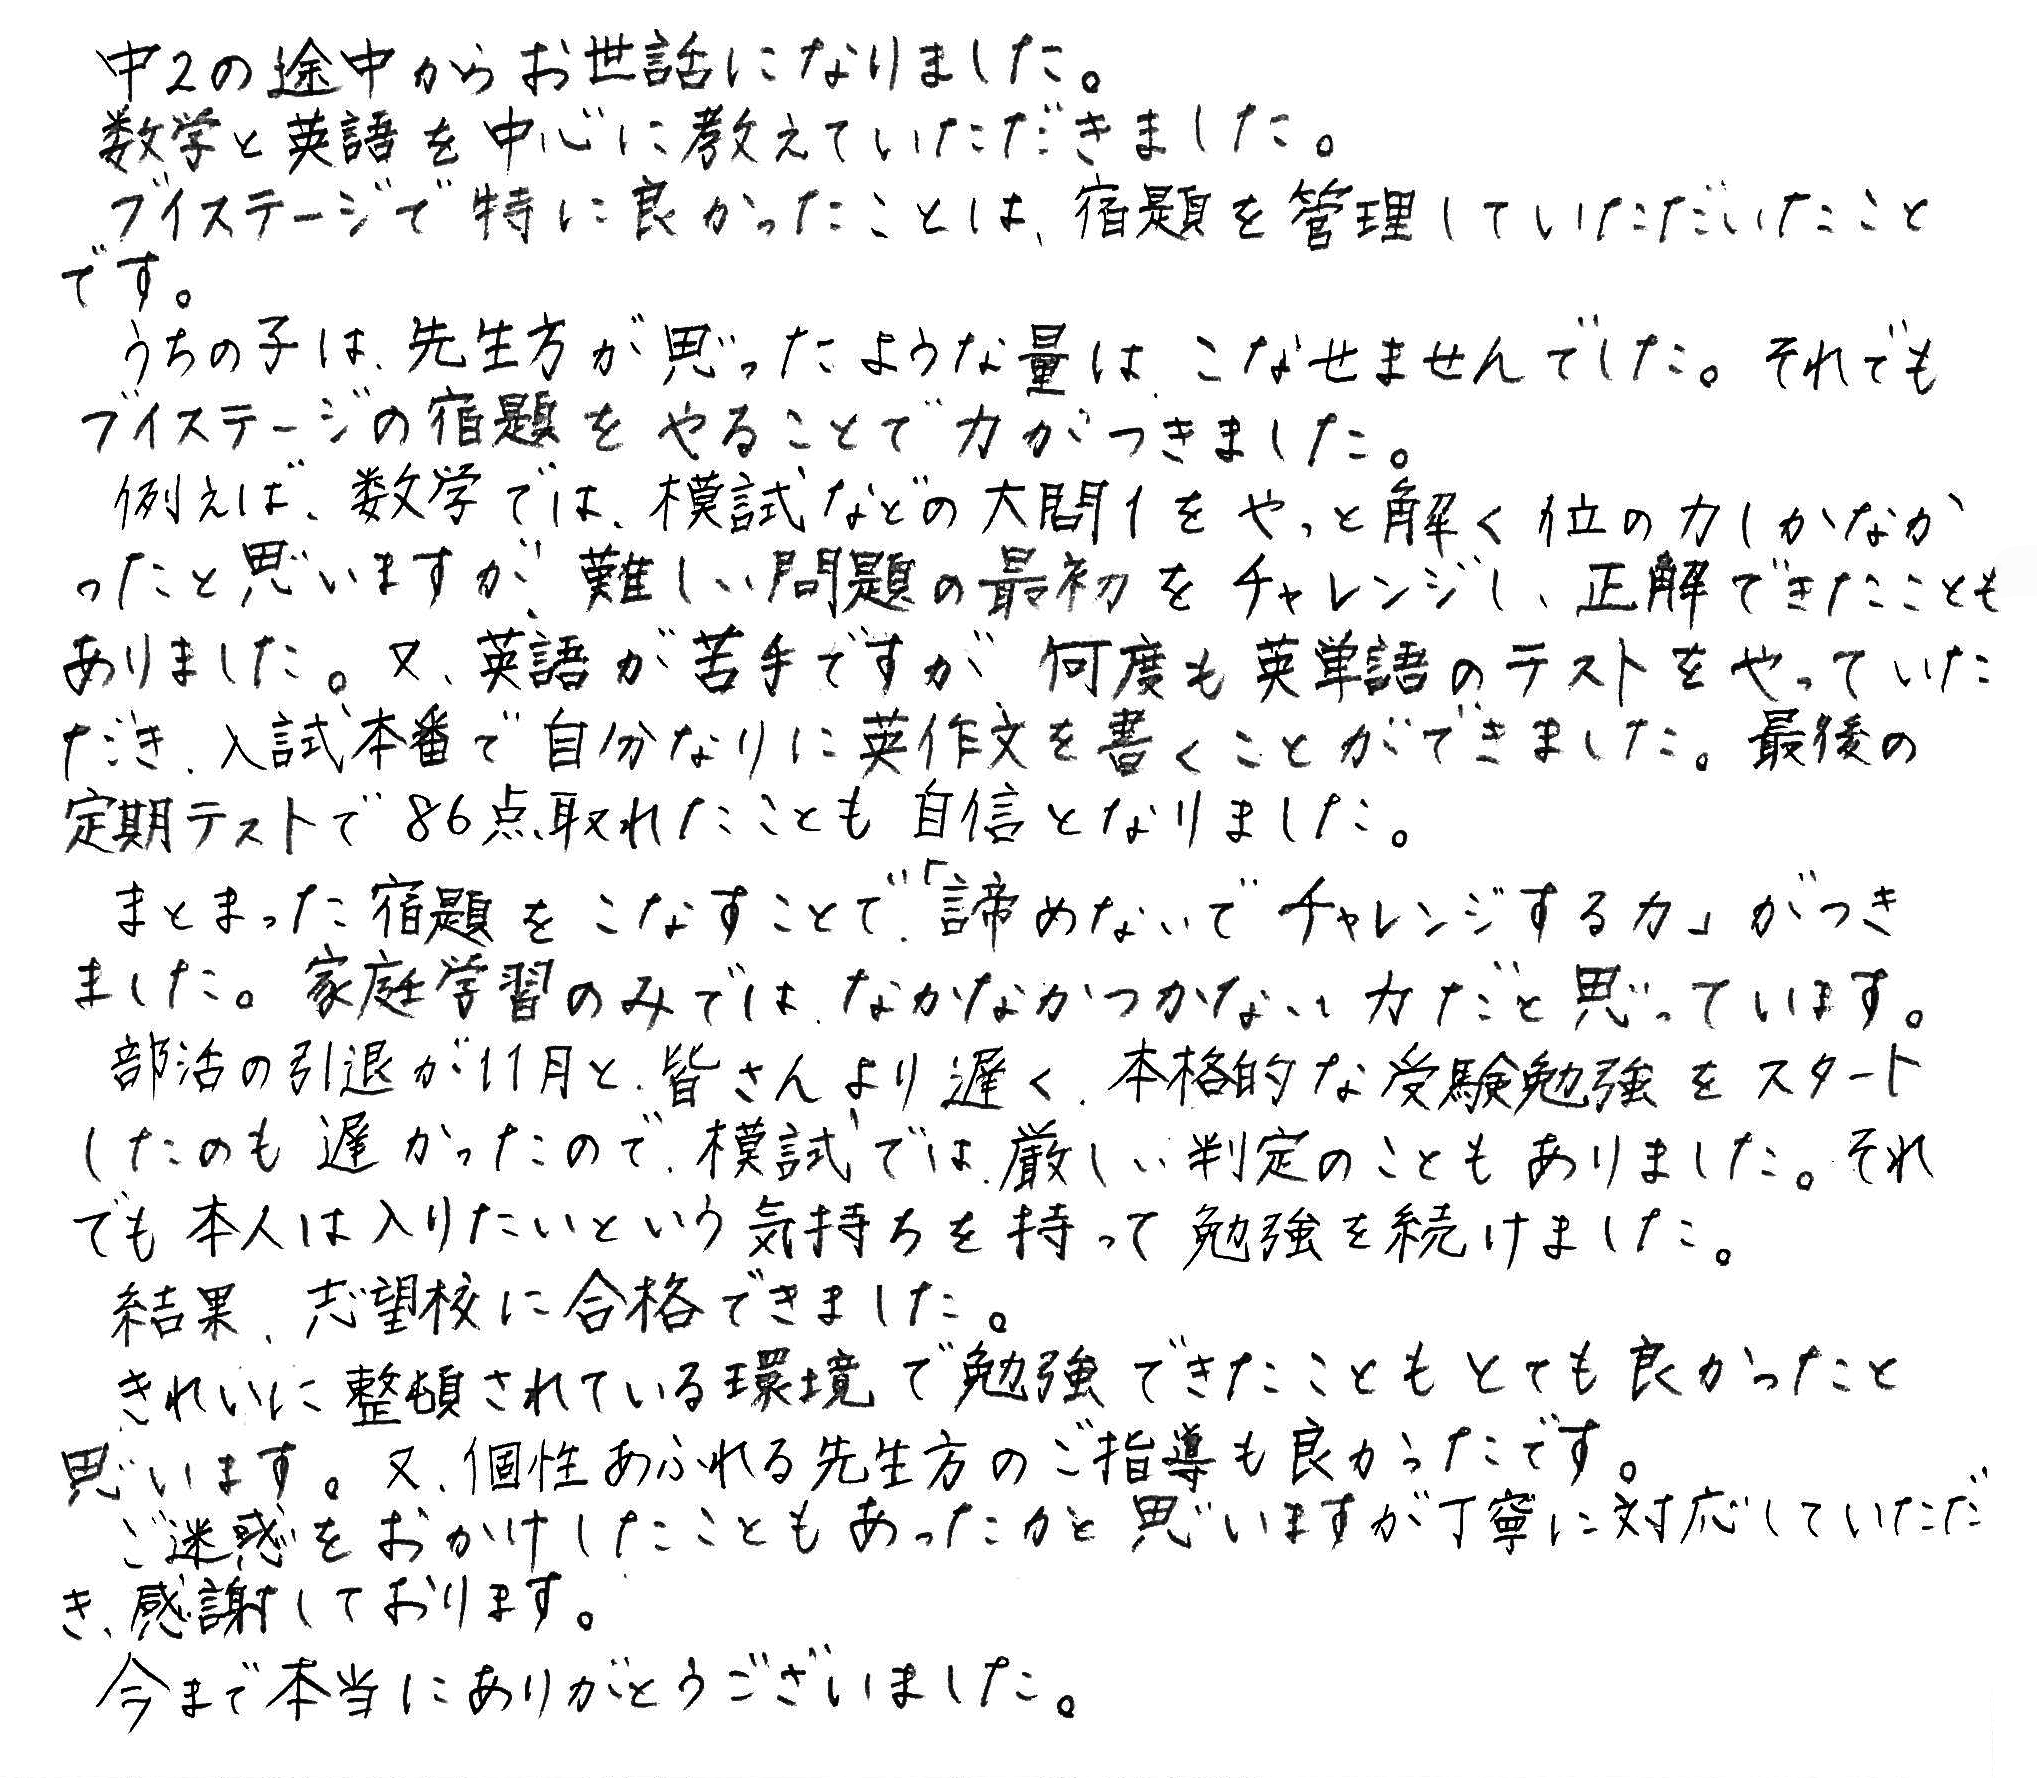 中2の途中からお世話になりました。
数学と英語を中心に教えていただきました。
ブイステージで特に良かったことは、宿題を管理していただいたこと
です。
うちの子は、先生方が思ったような量は、こなせませんでした。それでも
ブイステージの宿題をやることで力がつきました。
例えば、数学では、模試などの大問1をやっと解く位の力しかなか
ったと思いますが、難しい問題の最初をチャレンジし、正解できたことも
ありました。又、英語が苦手ですが、何度も英単語のテストをやっていた
だき、入試本番で自分なりに英作文を書くことができました。最後の
定期テストで86点取れたことも自信となりました。
まとまった宿題をこなすことで、「諦めないでチャレンジする力」がつき
ました。家庭学習のみでは、なかなかつかない力だと思っています。
部活の引退が11月と、皆さんより遅く、本格的な受験勉強をスタート
したのも遅かったので、模試では、厳しい判定のこともありました。それ
でも本人は入りたいという気持ちを持って勉強を続けました。
結果、志望校に合格できました。
きれいに整頓されている環境で勉強できたこともとても良かったと
思います。又、個性あふれる先生方のご指導も良かったです。
ご迷惑をおかけしたこともあったかと思いますが丁寧に対応していただ
き、感謝しております。
今まで本当にありがとうございました。